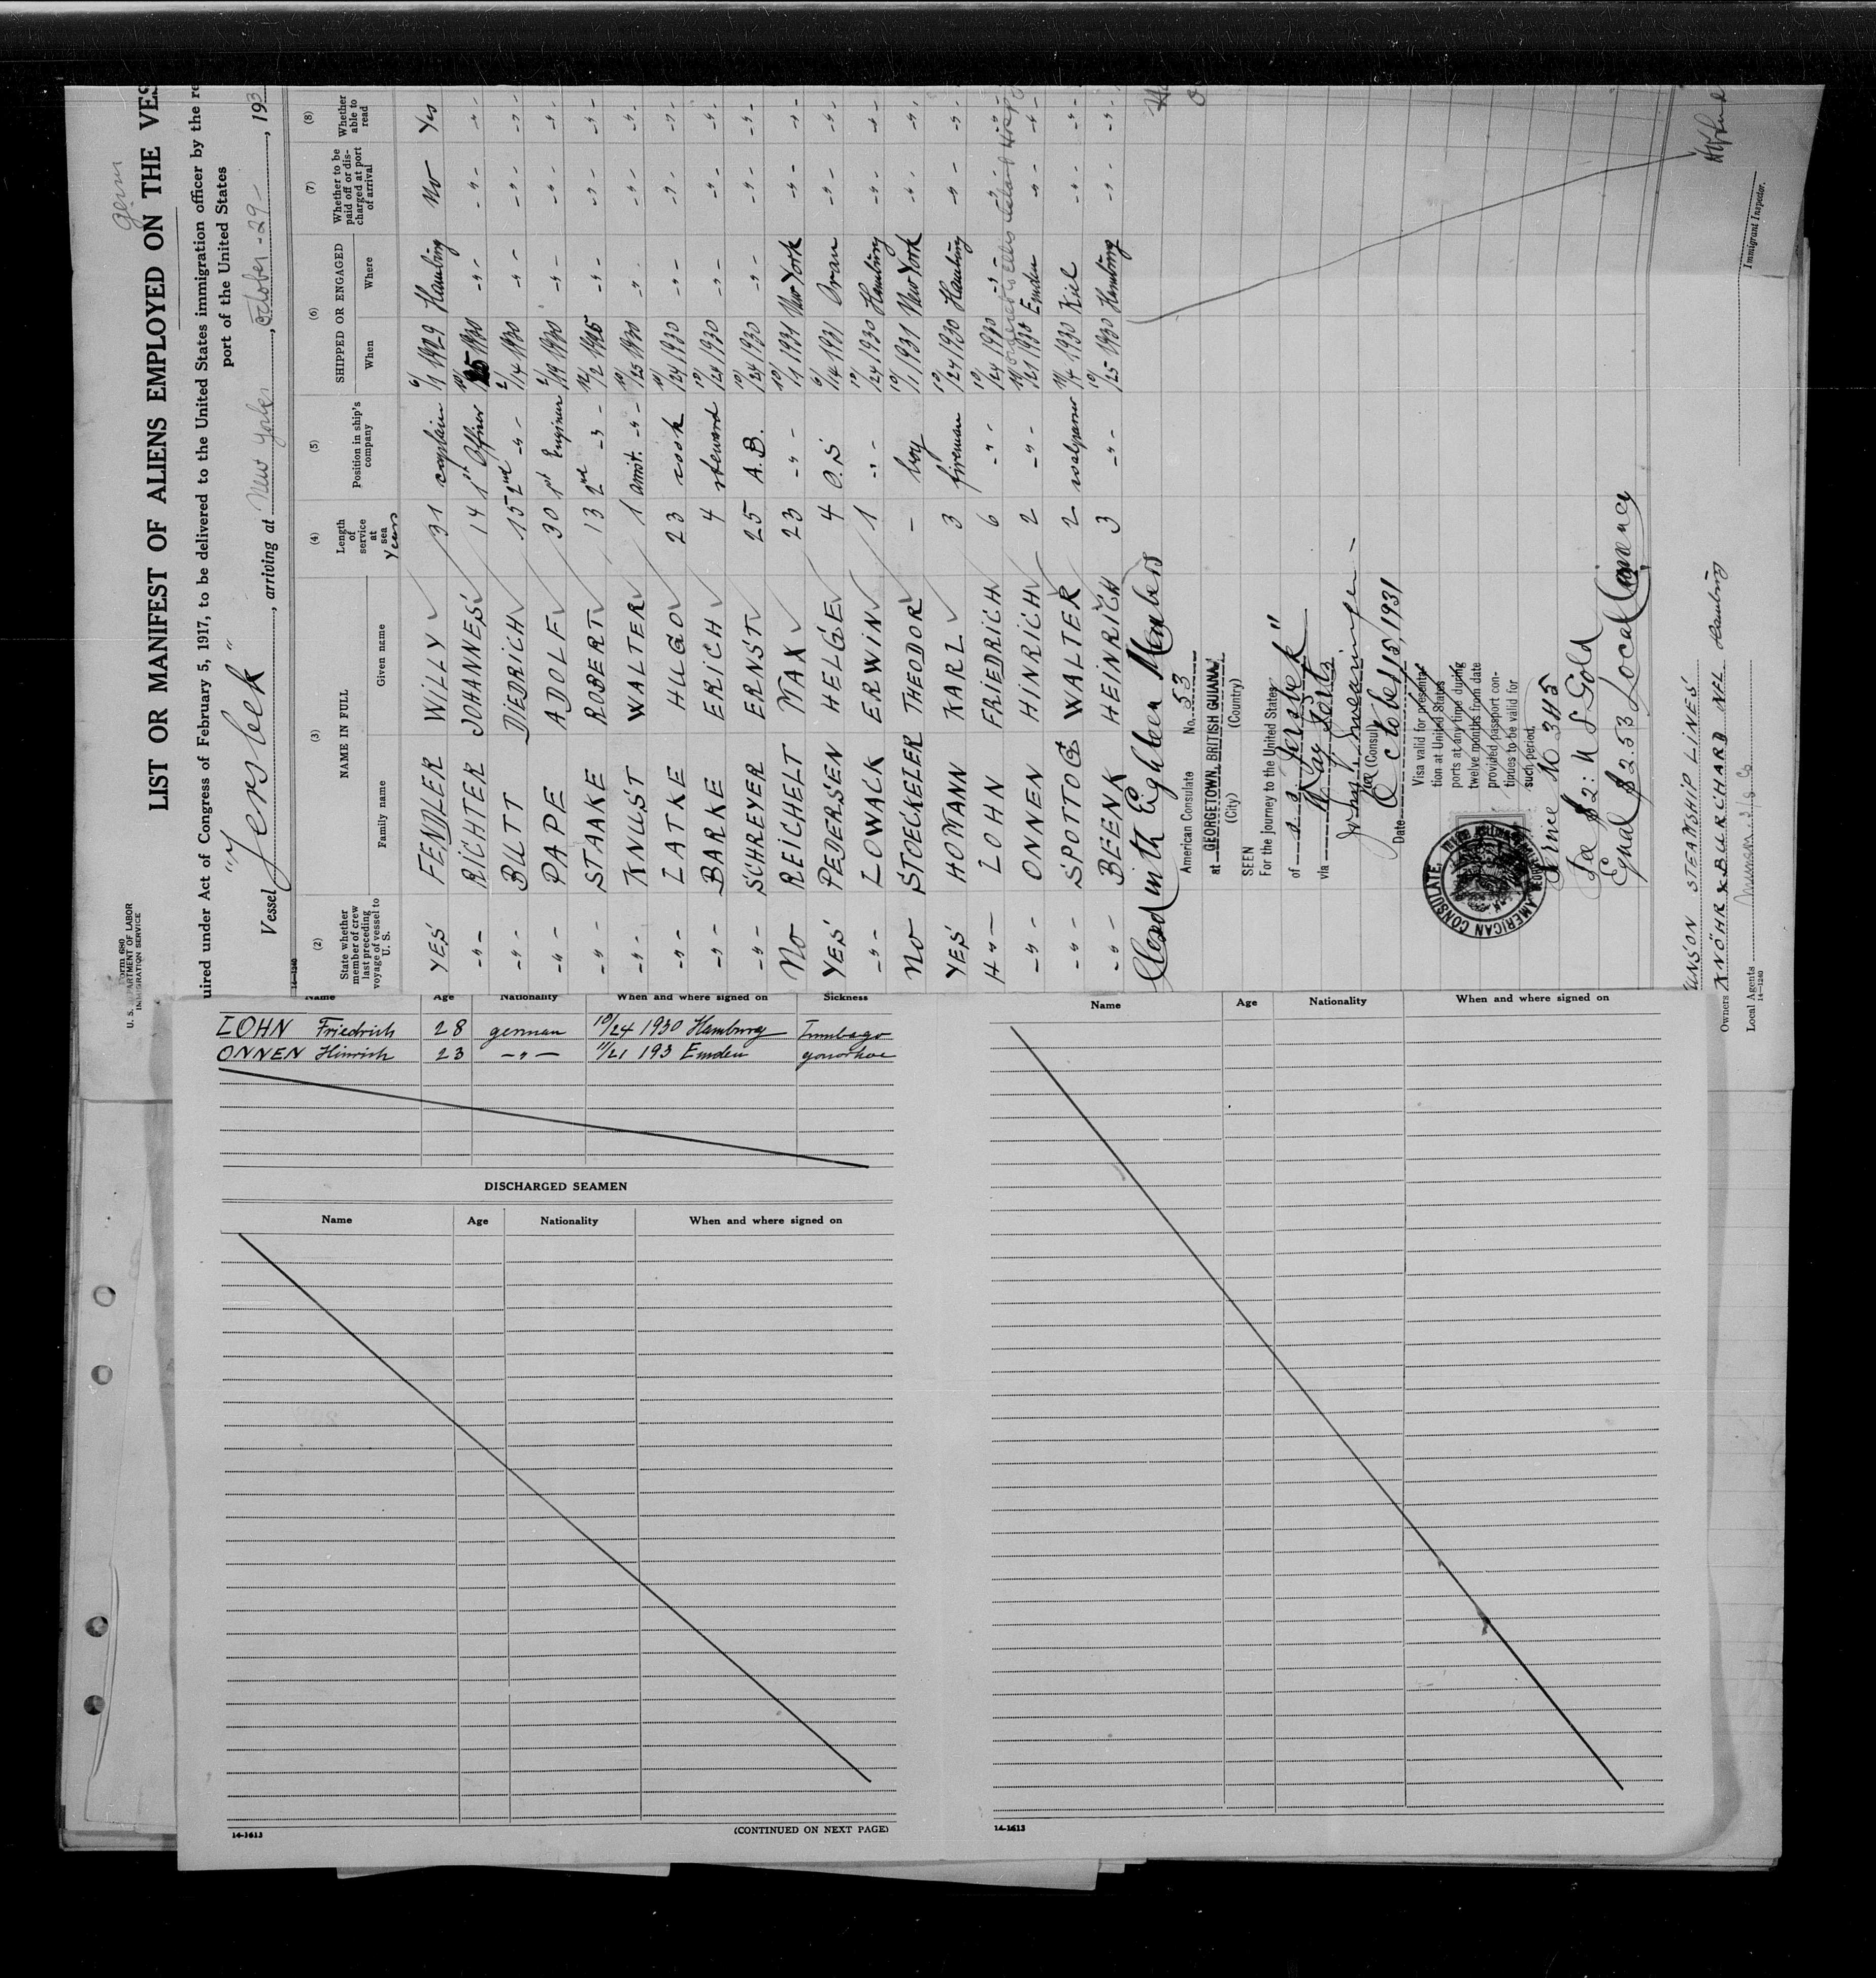 germ
Form 680
U. S. DEPARTMENT OF LABOR
IMMIGRATION SERVICE
LIST OR MANIFEST OF ALIENS EMPLOYED ON THE VES
uired under Act of Congress of February 5, 1917, to be delivered to the United States immigration officer by the re
port of the United States
Vessel "Jersbek", arriving at New York, October - 29 -, 193
(2) (3) (4) (5) (6) (7) (8)
State whether member of crew last preceding voyage of vessel to U. S.
NAME IN FULL
Family name Given name
Length of service at sea Years
Position in ship's company
SHIPPED OR ENGAGED
When Where
Whether to be paid off or discharged at port of arrival
Whether able to read
YES FENDLER WILLY 31 captain 6/1 1929 Hamburg No Yes
-"- RICHTER JOHANNES 14 1st Officer 10/25 1930 -"- -"- -"-
-"- BUTT DIEDRICH 15 2nd -"- 2/14 1930 -"- -"- -"-
-"- PAPE ADOLF 30 1st Engineer 2/19 1930 -"- -"- -"-
-"- STAAKE ROBERT 13 2nd -"- 12/2 1925 -"- -"- -"-
-"- KNUST WALTER 1 assist. -"- 10/25 1930 -"- -"- -"-
-"- LATKE HUGO 23 cook 10/24 1930 -"- -"- -"-
-"- BARKE ERICH 4 steward 10/24 1930 -"- -"- -"-
-"- SCHREYER ERNST 25 A.B. 10/24 1930 -"- -"- -"-
No REICHELT MAX 23 -"- 10/1 1931 New York -"- -"-
YES PEDERSEN HELGE 4 O.S 6/14 1931 Oran -"- -"-
-"- LOWACK ERWIN 1 -"- 10/24 1930 Hamburg -"- -"-
No STOECKELER THEODOR - boy 10/1 1931 New York -"- -"-
YES HOMANN KARL 3 fireman 10/24 1930 Hamburg -"- -"-
-"- LOHN FRIEDRICH 6 -"- 10/24 1930 -"- -"- -"-
-"- ONNEN HINRICH 2 -"- 11/21 1930 Emden -"- -"-
-"- SPOTTOG WALTER 2 coalpasser 11/4 1930 Kiel -"- -"-
-"- BEENK HEINRICH 3 -"- 10/25 1930 Hamburg -"- -"-
Closed with Eighteen Members
American Consulate No. 53
at GEORGETOWN, BRITISH GUIANA.
(City) (Country)
SEEN
For the journey to the United States
of s.s. "Jersbek"
via Way Ports
(Consul)
Date October 15, 1931
Visa valid for presentation at United States
ports at any time during
twelve months from date
provided passport continues to be valid for
such period.
AMERICAN CONSULATE
Service No 345
Fee $2: U S Gold
Equal $2.53 Local Currency
UNSON STEAMSHIP LINES
Owners KNÖHR & BURCHARD NFL Hamburg
Local Agents
14-1240
Immigrant Inspector.
Name Age Nationality When and where signed on Sickness
LOHN Friedrich 28 german 10/24 1930 Hamburg Lumbago
ONNEN Hinrich 23 -"- 11/21 193 Emden gonorhoe
DISCHARGED SEAMEN
Name Age Nationality When and where signed on
14-1613
(CONTINUED ON NEXT PAGE)
Name Age Nationality When and where signed on
14-1613